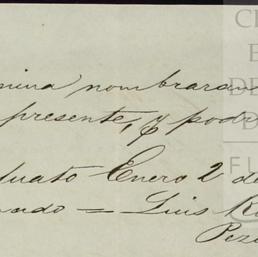 mina nombraran
presente, y podr
duato Enero 2 de
ndo = Luis R
Peza
C
E
DE
D
F U